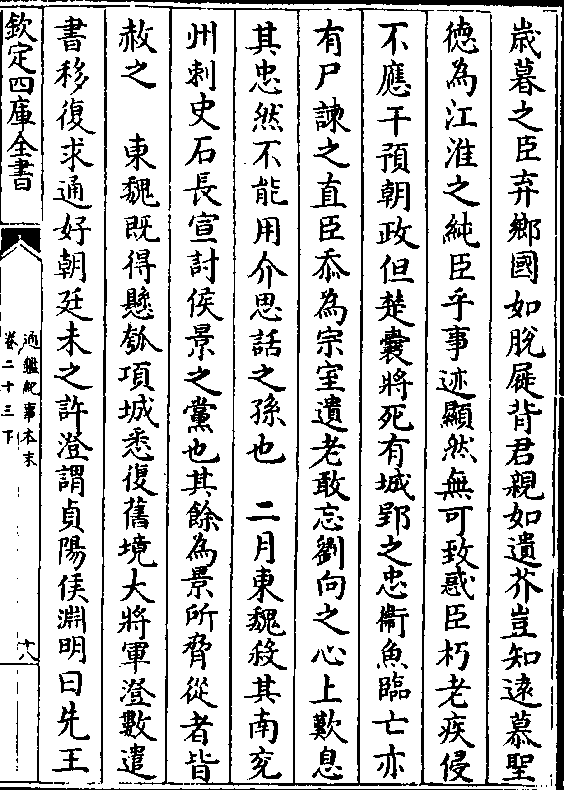 歳暮之臣弃鄉國如脫屣背君親如遺芥豈知逺慕聖
德為江淮之純臣乎事迹顯然無可致惑臣朽老疾侵
不應干預朝政但楚囊將死有城郢之忠衞魚臨亡亦
有尸諫之直臣忝為宗室遺老敢忘劉向之心上歎息
其忠然不能用介思話之孫也　二月東魏殺其南兖
州刺史石長宣討侯景之黨也其餘為景所脅從者皆
赦之　東魏既得懸瓠項城悉復舊境大將軍澄數遣
書移復求通好朝廷未之許澄謂貞陽侯淵明曰先王
欽定四庫全書
通鑑紀事本末
卷二十三下
十八